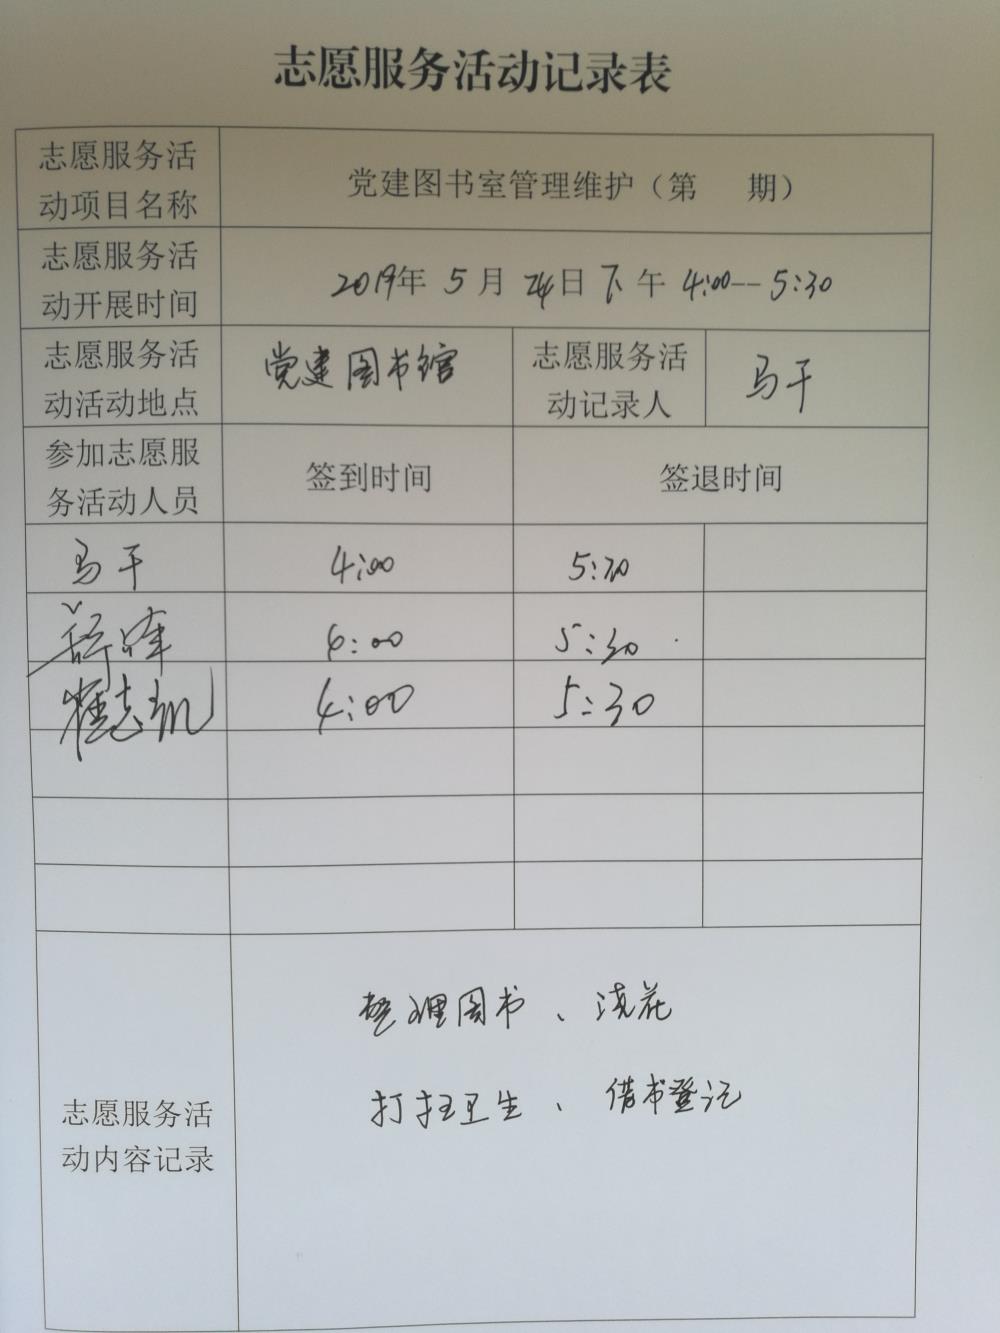 志愿服务活动记录表
志愿服务活
动项目名称
党建图书室管理维护（第 期）
志愿服务活
动开展时间
2019年 5 月 24日 下 午 4:00--5:30
志愿服务活
动活动地点
党建图书馆
志愿服务活
动记录人
马干
参加志愿服
务活动人员
签到时间
签退时间
马干
4:00
5:30
4:00
5:30
崔志凯
4:00
5:30
志愿服务活
动内容记录
整理图书、浇花
打扫卫生、借书登记